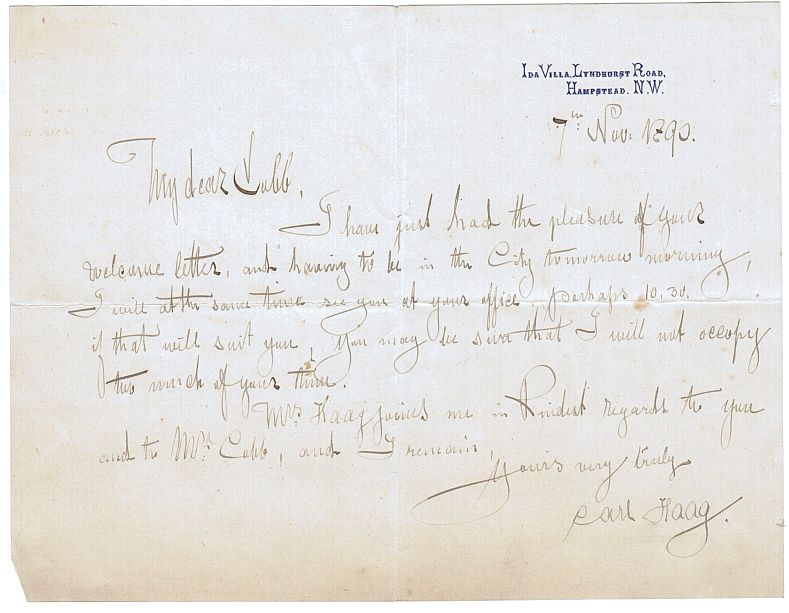 IDA VILLA, LYNDHURST ROAD,
HAMPSTEAD. N.W.
7th Nov. 1890.
My dear Cobb,
I have just had the pleasure of your
welcome letter, and having to be in the City tomorrow morning,
I will at the same time see you at your office perhaps 10,30.
if that will suit you, You may be sure that I will not occupy
too much of your time.
Mrs. Haag joines me in Kindest regards to you
and to Mrs. Cobb, and I remain,
Yours very truly
Carl Haag.